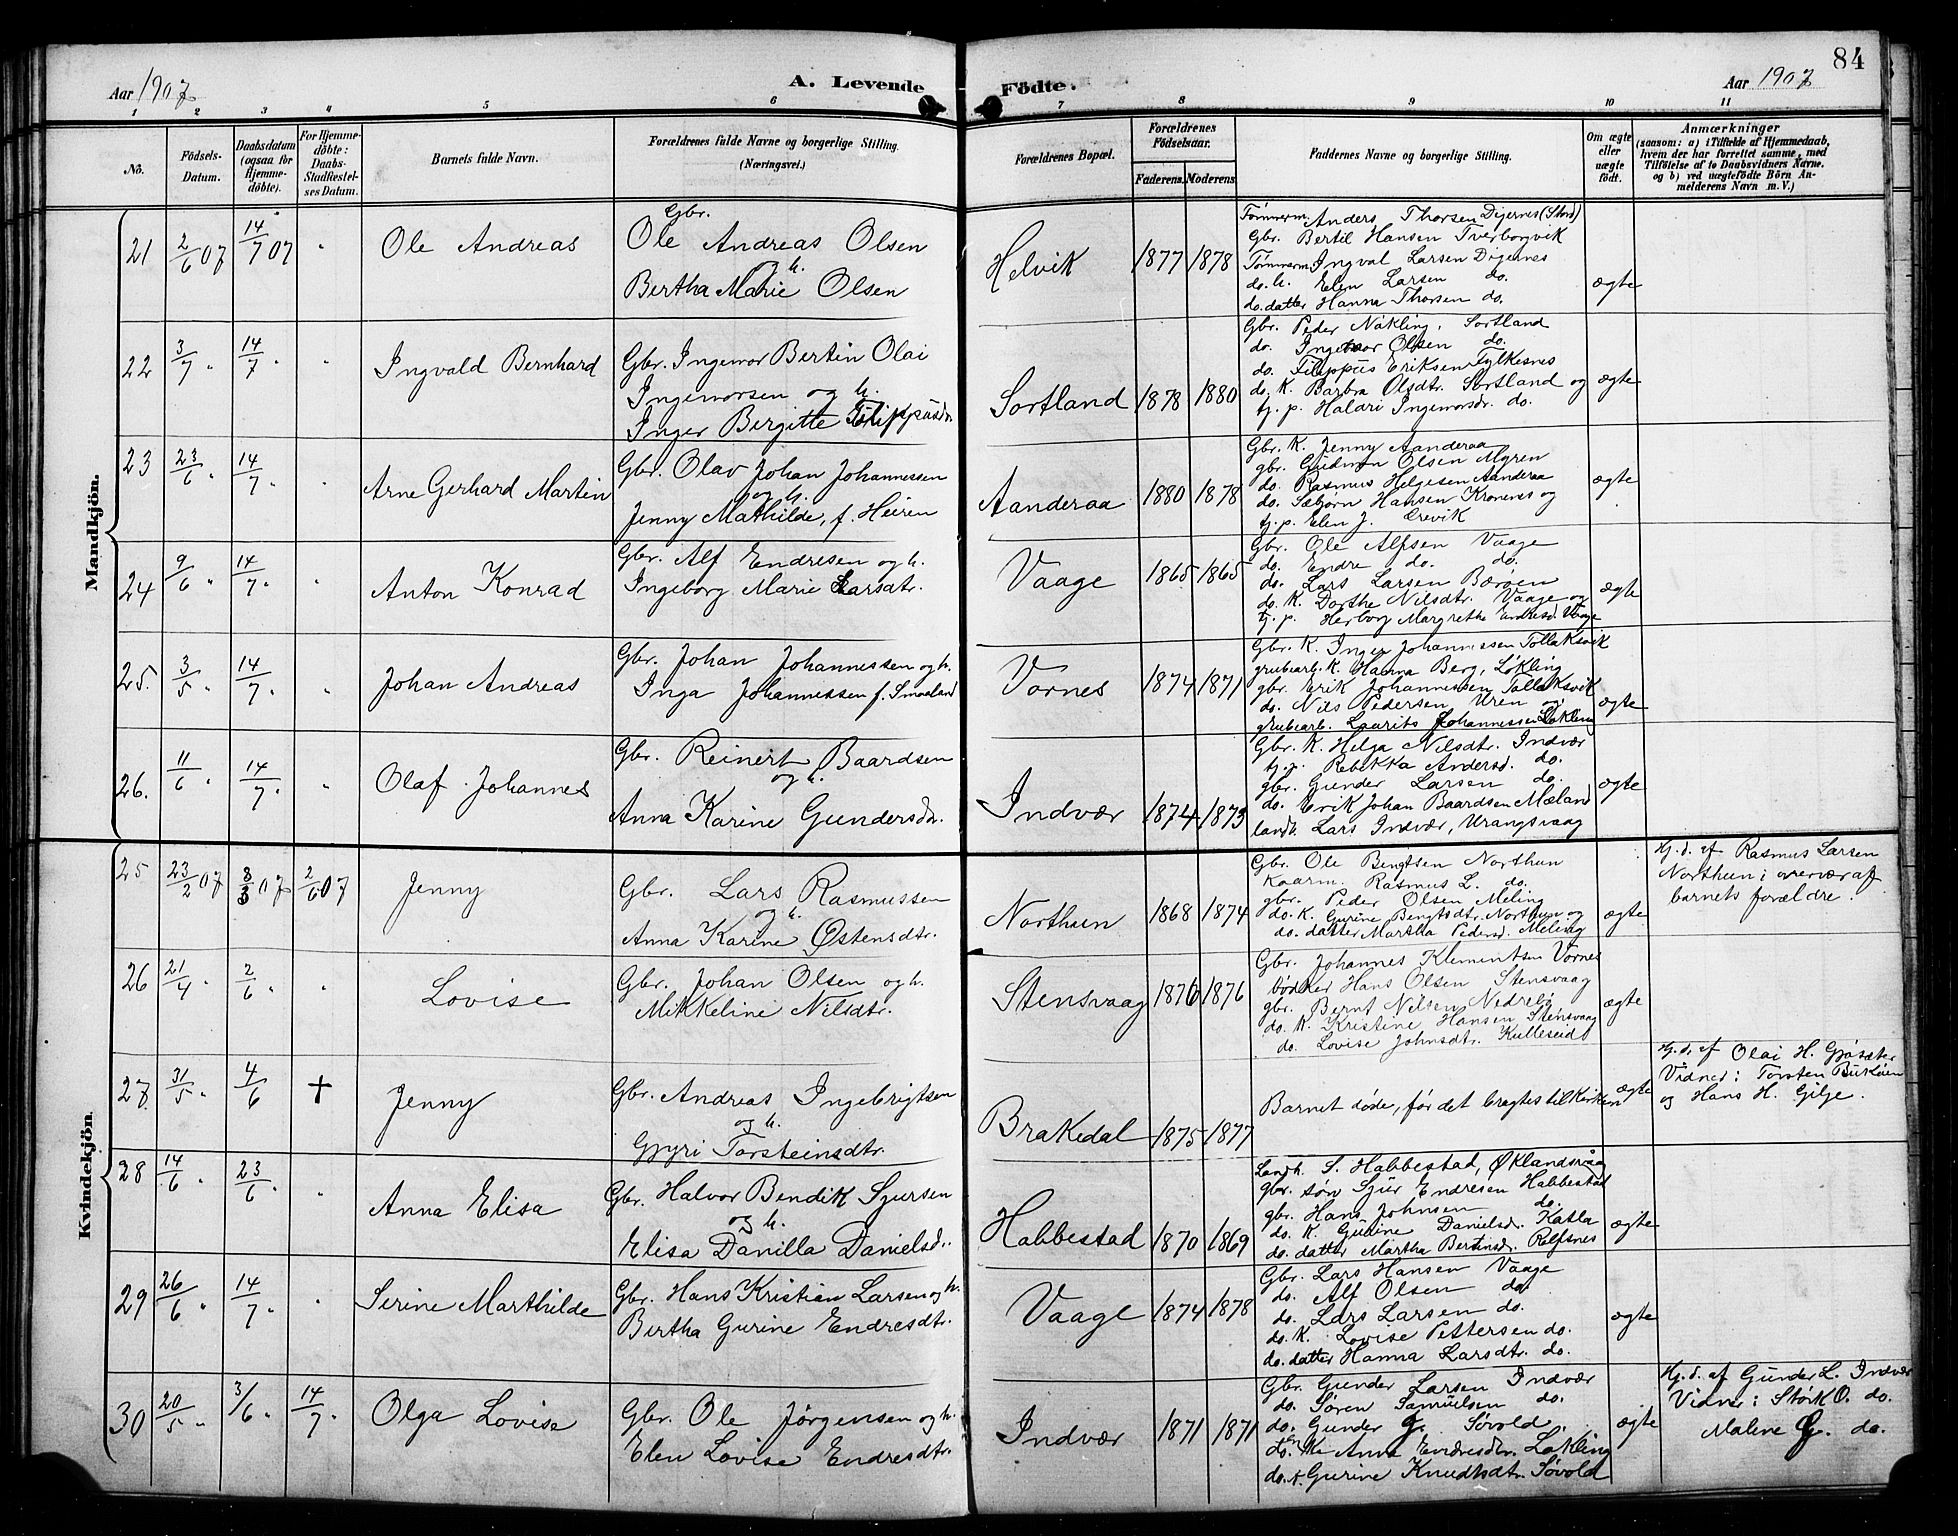 84
Aar 1907
A. Levende
Födte.
Aar 1907
1 2 3 4 5 6 7 8 9 10 11
No.
Födsels-Datum.
Daabsdatum (ogsaa for Hjemmedöbte).
For Hjemmedöbte: Daabs-Stadfæstelses Datum.
Barnets fulde Navn.
Forældrenes fulde Navne og borgerlige Stilling. (Næringsvei.)
Forældrenes Bopæl.
Forældrenes Födselsaar.
Faderens. Moderens.
Faddernes Navne og borgerlige Stilling.
Om ægte eller uægte födt.
Anmærkninger
(saasom: a) i Tilfælde af Hjemmedaab, hvem der har forrettet samme, med Tilföielse af to Daabsvidners Navne, og b) ved uægtefödte Börn Anmelderens Navn m. V.)
Mandkjön.
21 2/6 07 14/7 07 " Ole Andreas
Gbr.
Ole Andreas Olsen
og h.
Bertha Marie Olsen
Helvik 1877 1878
Tømmerm. Anders Thorsen Digernes (Stord)
Gbr. Bertil Hansen Tverborgvik
Tømmerm. Ingval Larsen Digernes
do. h. Elen Larsen do.
do. datter Hanna Thorsen do.
ægte
22 3/7 " 14/7 " " Ingvald Bernhard
Gbr. Ingemor Bertin Olai
Ingemorsen og h.
Inger Bergitte Filippusdr.
Sortland 1878 1880
Gbr. Peder Nökling, Sortland
do. Ingebor Olsen do.
do. Filippus Eriksen Fylkesnes
do. K. Barbra Olsdtr. Sortland og
tj. p. Haldri Ingemorsdr. do.
ægte
23 23/6 " 14/7 " " Arne Gerhard Martin
Gbr. Olav Johan Johannessen
og h.
Jenny Mathilde, f. Heiren
Aanderaa 1880 1878
Gbr. K. Jenny Aanderaa
gbr. Gudmun Olsen Myren
do. Rasmus Helgesen Aanderaa
do. Sæbjørn Hansen Kronenes og
tj. p. Elen J. Erevik
ægte
24 9/6 " 14/7 " " Anton Konrad
Gbr. Alf Endresen og h.
Ingeborg Marie Larsdtr.
Vaage 1865 1865
Gbr. Ole Alfsen Vaage
do. Endre do. do.
do. Lars Larsen Bærøen
do. K. Dorthe Nilsdtr. Vaage og
tj. p. Herborg Margrethe Endresd. Vaage
ægte
25. 3/5 " 14/7 " " Johan Andreas
Gbr. Johan Johannessen og h.
Inga Johannessen f. Smaaland
Vornes 1874 1871
Gbr. K. Inger Johannessen Tollaksvik
grubearb. K. Hanna Berg, Løkling
gbr. Erik Johannessen Tollaksvik
do. Nils Pedersen Uren og
grubearb. Laurits Johannessen Løkling
ægte
26. 11/6 " 14/7 " " Olaf Johannes
Gbr. Reinert Baardsen
og h.
Anna Karine Gundersdr.
Indvær 1874 1873
Gbr. K. Helga Nilsdtr. Indvær
tj. p. Rebekka Andersd. do.
gbr. Gunder Larsen do.
do. Erik Johan Baardsen Mæland
landh. Lars Indvær, Urangsvaag
ægte
Kvindekjön.
25 23/2 07 3/3 07 2/6 07 Jenny
Gbr. Lars Rasmussen
og h.
Anna Karine Østensdtr.
Northun 1868 1874
Gbr. Ole Bengtsen Northun
Kaarm. Rasmus L. do.
gbr. Peder Olsen Meling
do. K. Gurine Bengtsdtr. Northun og
do. datter Martha Pedersd. Meling
ægte
Hj. d. af Rasmus Larsen
Northun i overvær af
barnets forældre.
26 21/4 " 2/6 " " Lovise
Gbr. Johan Olsen og h.
Mikkeline Nilsdtr.
Stensvaag 1876 1876
Gbr. Johannes Klementsen Vornes
bödker Hans Olsen Stensvaag
gbr. Bernt Nilsen Nedrebö
do. K. Kristine Hansen Stensvaag
do. Lovise Johnsdtr. Kulleseid
ægte
27. 31/5 " 4/6 † Jenny
Gbr. Andreas Ingebrigtsen
og h.
Gjyri Torsteinsdtr.
Brakedal 1875 1877
Barnet døde, før det bragtes til Kirken
ægte
Hj. d. af Olai H. Gjøsæter
Vidner: Torsten Burkeien
og Hans H. Gilje.
28 14/6 " 23/6 " " Anna Elisa
Gbr. Halvor Bendik Sjursen
og h.
Elisa Danilla Danielsd.
Habbestad 1870 1869
Landh. S. Habbestad, Øklandsvåg
gbr. søn Sjur Endresen Habbestad
gbr. Hans Johnsen do.
do. K. Gurine Danielsd. Katla
do. datter Martha Bertinsdr. Rolfsnes
ægte
29 26/6 " 14/7 " " Serine Marthilde
Gbr. Hans Kristian Larsen og h.
Bertha Gurine Endresdtr.
Vaage 1874 1878
Gbr. Lars Hansen Vaage
do. Alf Olsen do
do. Lars Larsen do.
do. K. Lovise Pettersen do.
do. datter Hanna Larsdtr. do.
ægte
30 20/5 " 3/6 " 14/7 " Olga Lovise
Gbr. Ole Jørgensen og h.
Elen Lovise Endresdtr.
Indvær 1871 1871
Gbr. Gunder Larsen Indvær
do. Søren Samuelsen do.
do. Gunder G. Søvold
do. Anna Endresdtr. Løkling
do. K. Gurine Knudtsdtr. Søvold
ægte
Hj. d. af Gunder L. Indvær
Vidner: Størk O. do.
Maline G. do.